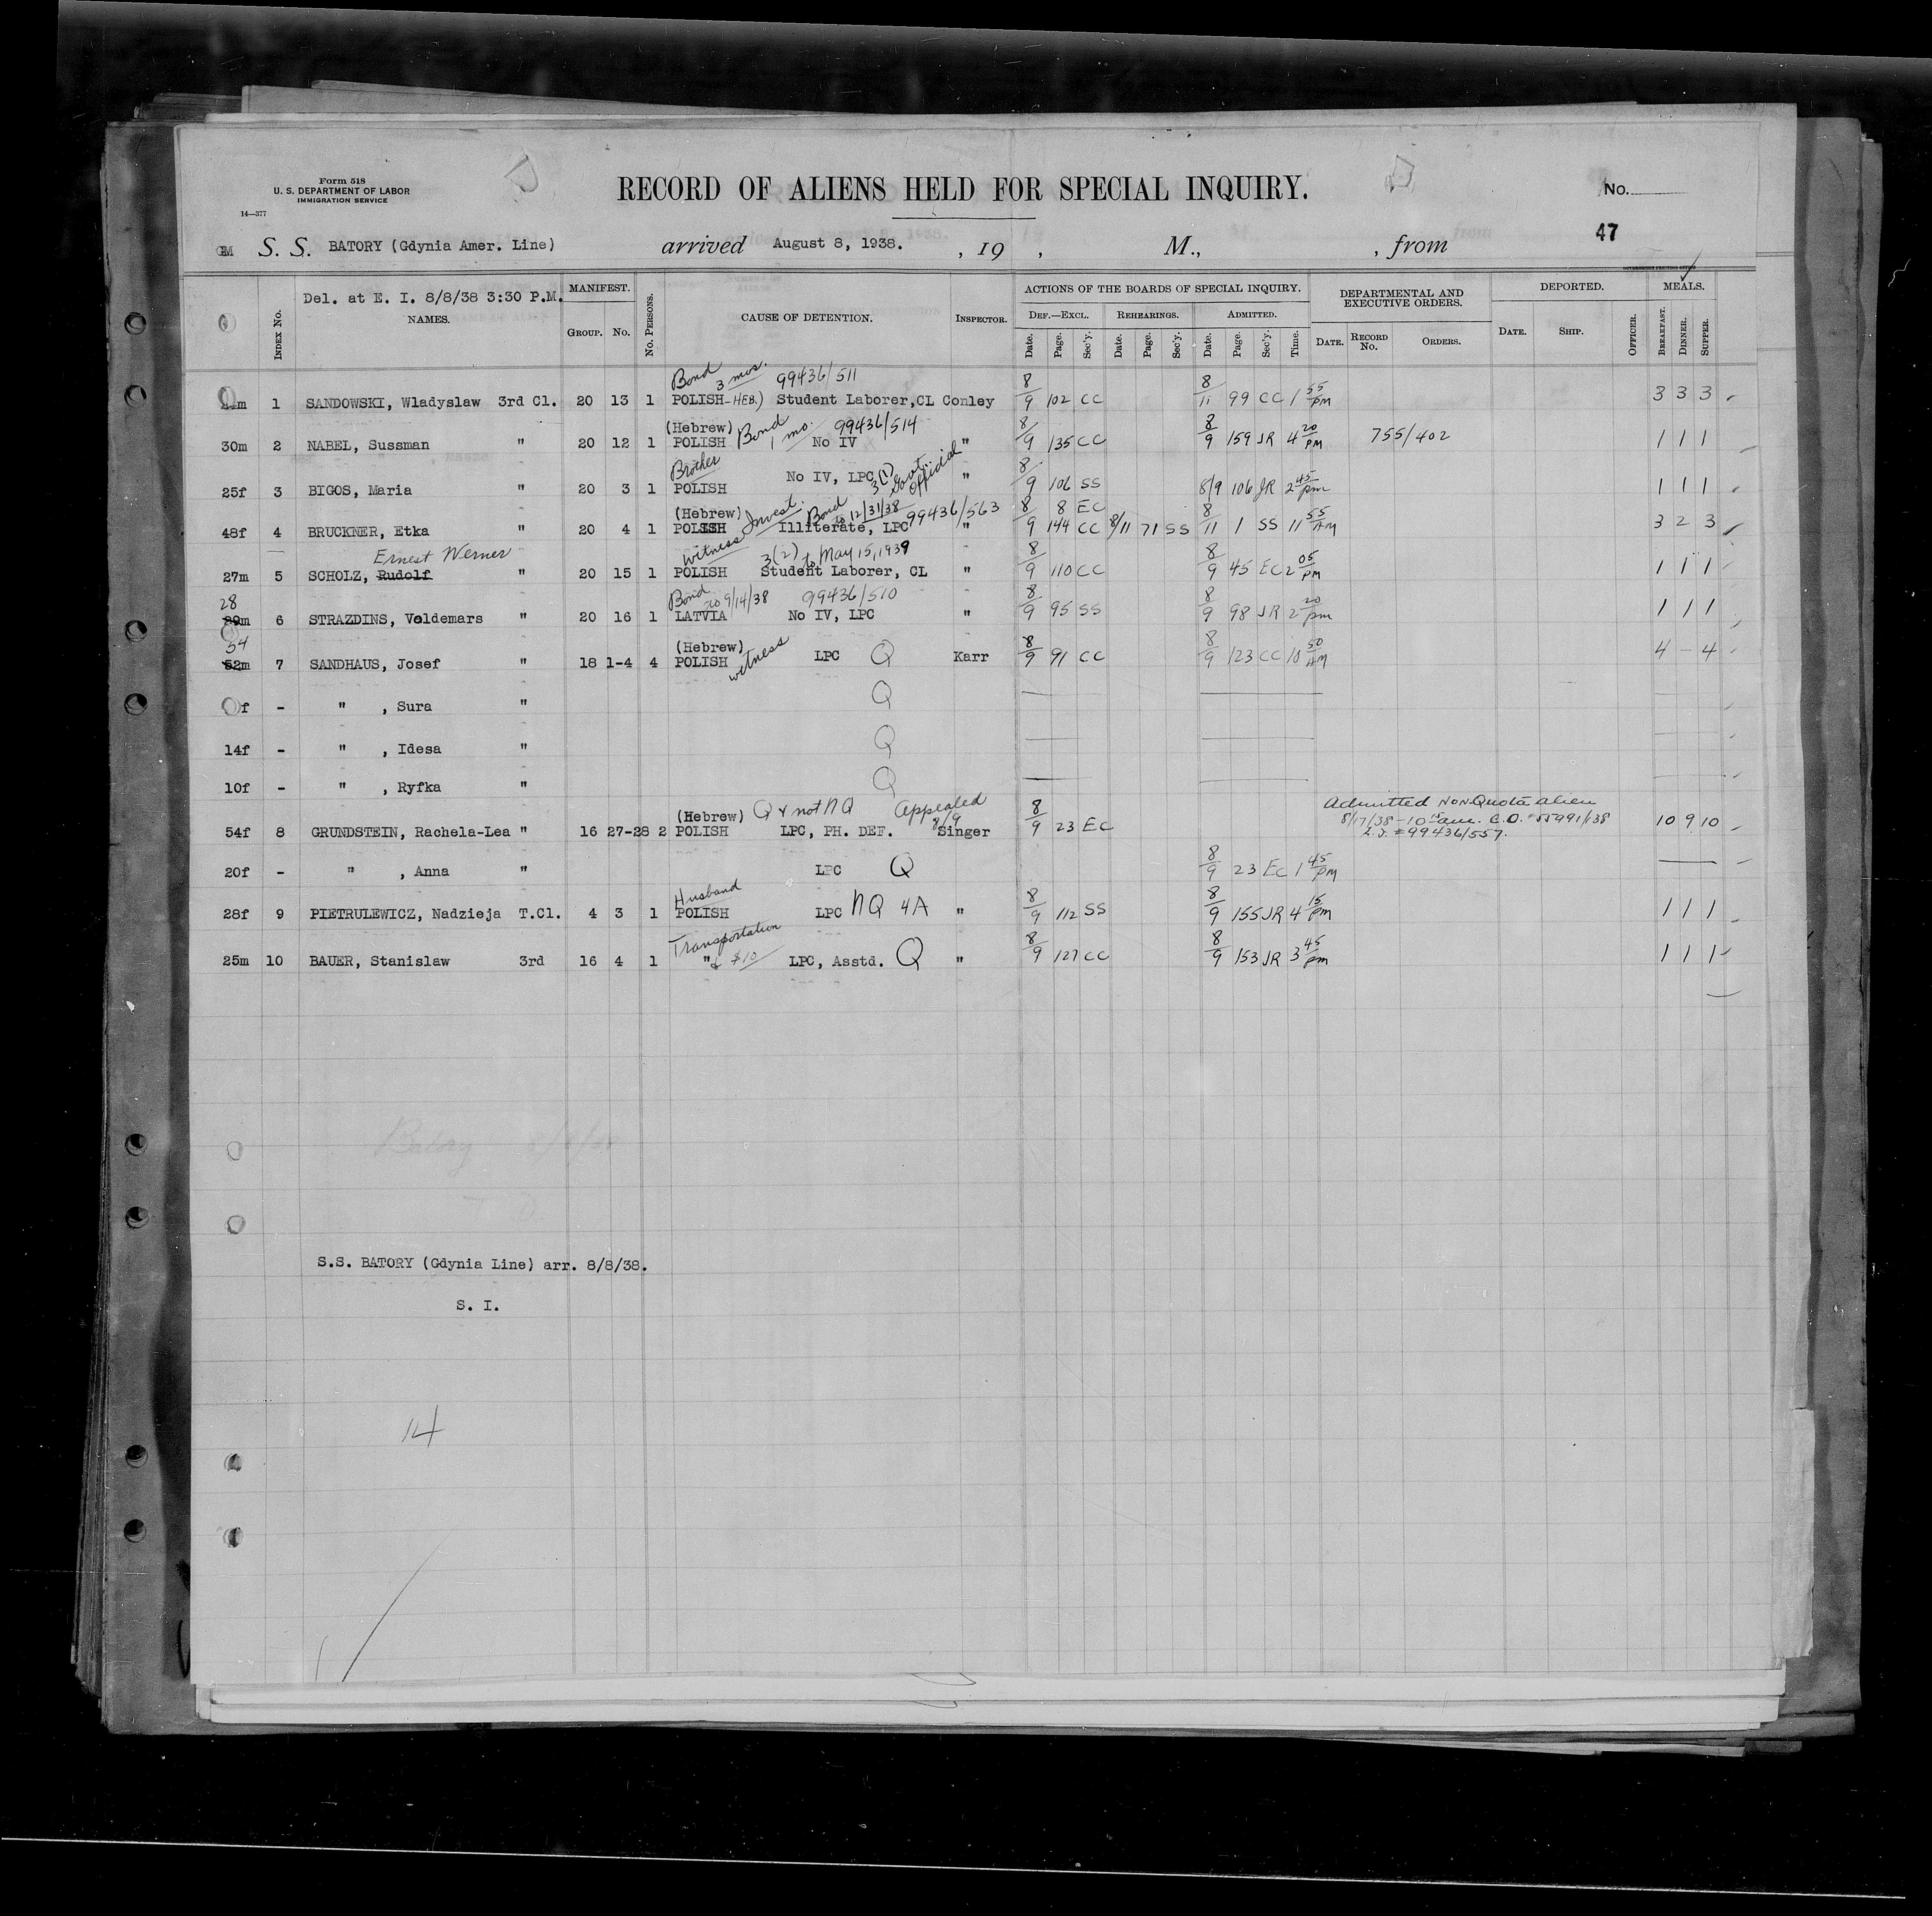 Form 518
U. S. DEPARTMENT OF LABOR
IMMIGRATION SERVICE
14—377
RECORD OF ALIENS HELD FOR SPECIAL INQUIRY.
No.
S. S. BATORY (Gdynia Amer. Line) arrived August 8, 1938. , 19 , M., , from 47
Del. at E. I. 8/8/38 3:30 P.M.
INDEX No. NAMES. MANIFEST. GROUP. No. No. PERSONS. CAUSE OF DETENTION. INSPECTOR. ACTIONS OF THE BOARDS OF SPECIAL INQUIRY. DEF.—EXCL. Date. Page. Sec'y. REHEARINGS. Date. Page. Sec'y. ADMITTED. Date. Page. Sec'y. Time. DEPARTMENTAL AND EXECUTIVE ORDERS. DATE. RECORD No. ORDERS. DEPORTED. DATE. SHIP. OFFICER. MEALS. BREAKFAST. DINNER. SUPPER.
Bond 3 mos. 99436/511
1 SANDOWSKI, Wladyslaw 3rd Cl. 20 13 1 POLISH-HEB.) Student Laborer, CL Conley 8/9 102 CC 8/11 99 CC 1 55 pm 3 3 3
(Hebrew) Bond 1 mo. 99436/514
30m 2 NABEL, Sussman " 20 12 1 POLISH No IV " 8/9 135 CC 8/9 159 JR 4 20 pm 755/402 1 1 1
Brother 3(1) Govt. Official
25f 3 BIGOS, Maria " 20 3 1 POLISH No IV, LPC " 8/9 106 SS 8/9 106 JR 2 45 pm 1 1 1
(Hebrew) witness Invest. Bond to 12/31/38 99436/563 8 EC
48f 4 BRUCKNER, Etka " 20 4 1 POLISH Illiterate, LPC " 8/9 144 CC 8/11 71 SS 8/11 1 SS 11 55 AM 3 2 3
Ernest Werner 3(2) to May 15, 1939
27m 5 SCHOLZ, Rudolf " 20 15 1 POLISH Student Laborer, CL " 8/9 110 CC 8/9 45 EC 2 05 pm 1 1 1
28 Bond to 9/14/38 99436/510
29m 6 STRAZDINS, Voldemars " 20 16 1 LATVIA No IV, LPC " 8/9 95 SS 8/9 98 JR 2 20 pm 1 1 1
54 (Hebrew) witness
52m 7 SANDHAUS, Josef " 18 1-4 4 POLISH LPC Q Karr 8/9 91 CC 8/9 123 CC 10 50 AM 4 - 4
f - " , Sura " Q
14f - " , Idesa " Q
10f - " , Ryfka " Q
(Hebrew) Q & not NQ Appealed 8/9 Admitted NON-Quota alien
54f 8 GRUNDSTEIN, Rachela-Lea " 16 27-28 2 POLISH LPC, PH. DEF. Singer 8/9 23 EC 8/17/38 - 10 am. C.O. #55991/138 10 9 10
#99436/557.
20f - " , Anna " LPC Q 8/9 23 EC 1 45 pm
Husband
28f 9 PIETRULEWICZ, Nadzieja T.Cl. 4 3 1 POLISH LPC NQ 4A " 8/9 112 SS 8/9 155 JR 4 15 pm 1 1 1
Transportation & $10
25m 10 BAUER, Stanislaw 3rd 16 4 1 " LPC, Asstd. Q " 8/9 127 CC 8/9 153 JR 3 45 pm 1 1 1
Batory 8/8/38
S.S. BATORY (Gdynia Line) arr. 8/8/38.
S. I.
14